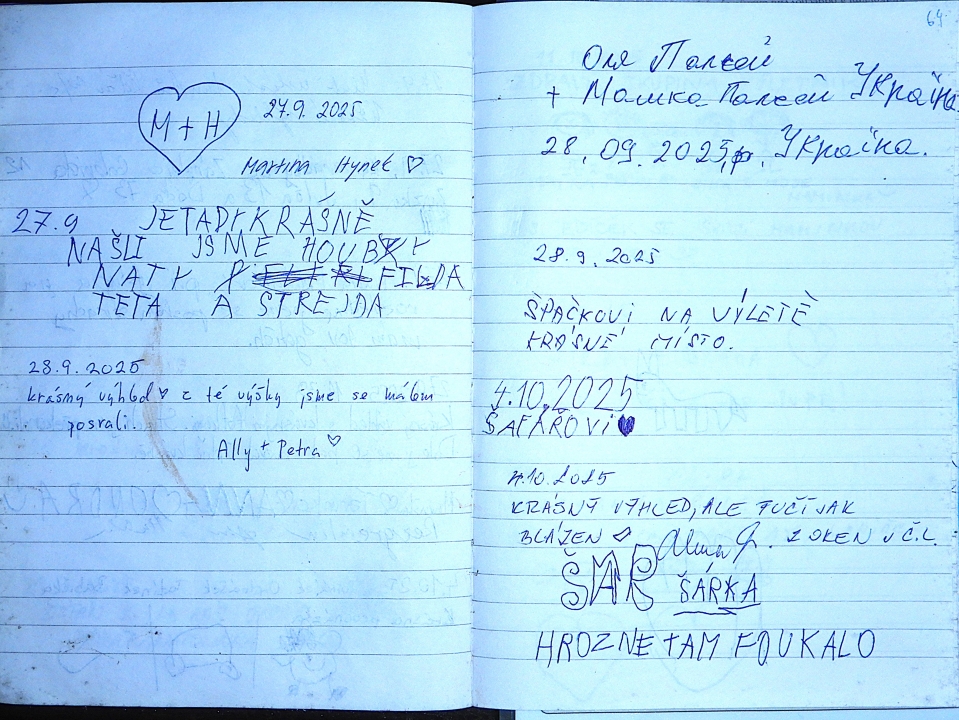 M + H
27.9. 2025
Martina Hynek ♡
27.9 JE TADY KRÁSNĚ
NAŠLI JSME HOUBY
NATY FILDA
TETA A STREJDA
28.9.2025
krásný výhled ♡ z té výšky jsme se málem
posrali.
Ally + Petra ♡
64
Оля Палсей
+ Машка Палсей Україна
28.09.2025р. Україна.
28.9.2025
ŠPAČKOVI NA VÝLETĚ
KRÁSNÉ MÍSTO.
4.10.2025
ŠAFÁŘOVI ♥
4.10.2025
KRÁSNÝ VÝHLED, ALE FUČÍ JAK
BLÁZEN ♡ Z OKEN U Č.L.
ŠÁR ŠÁRKA
HROZNE TAM FOUKALO